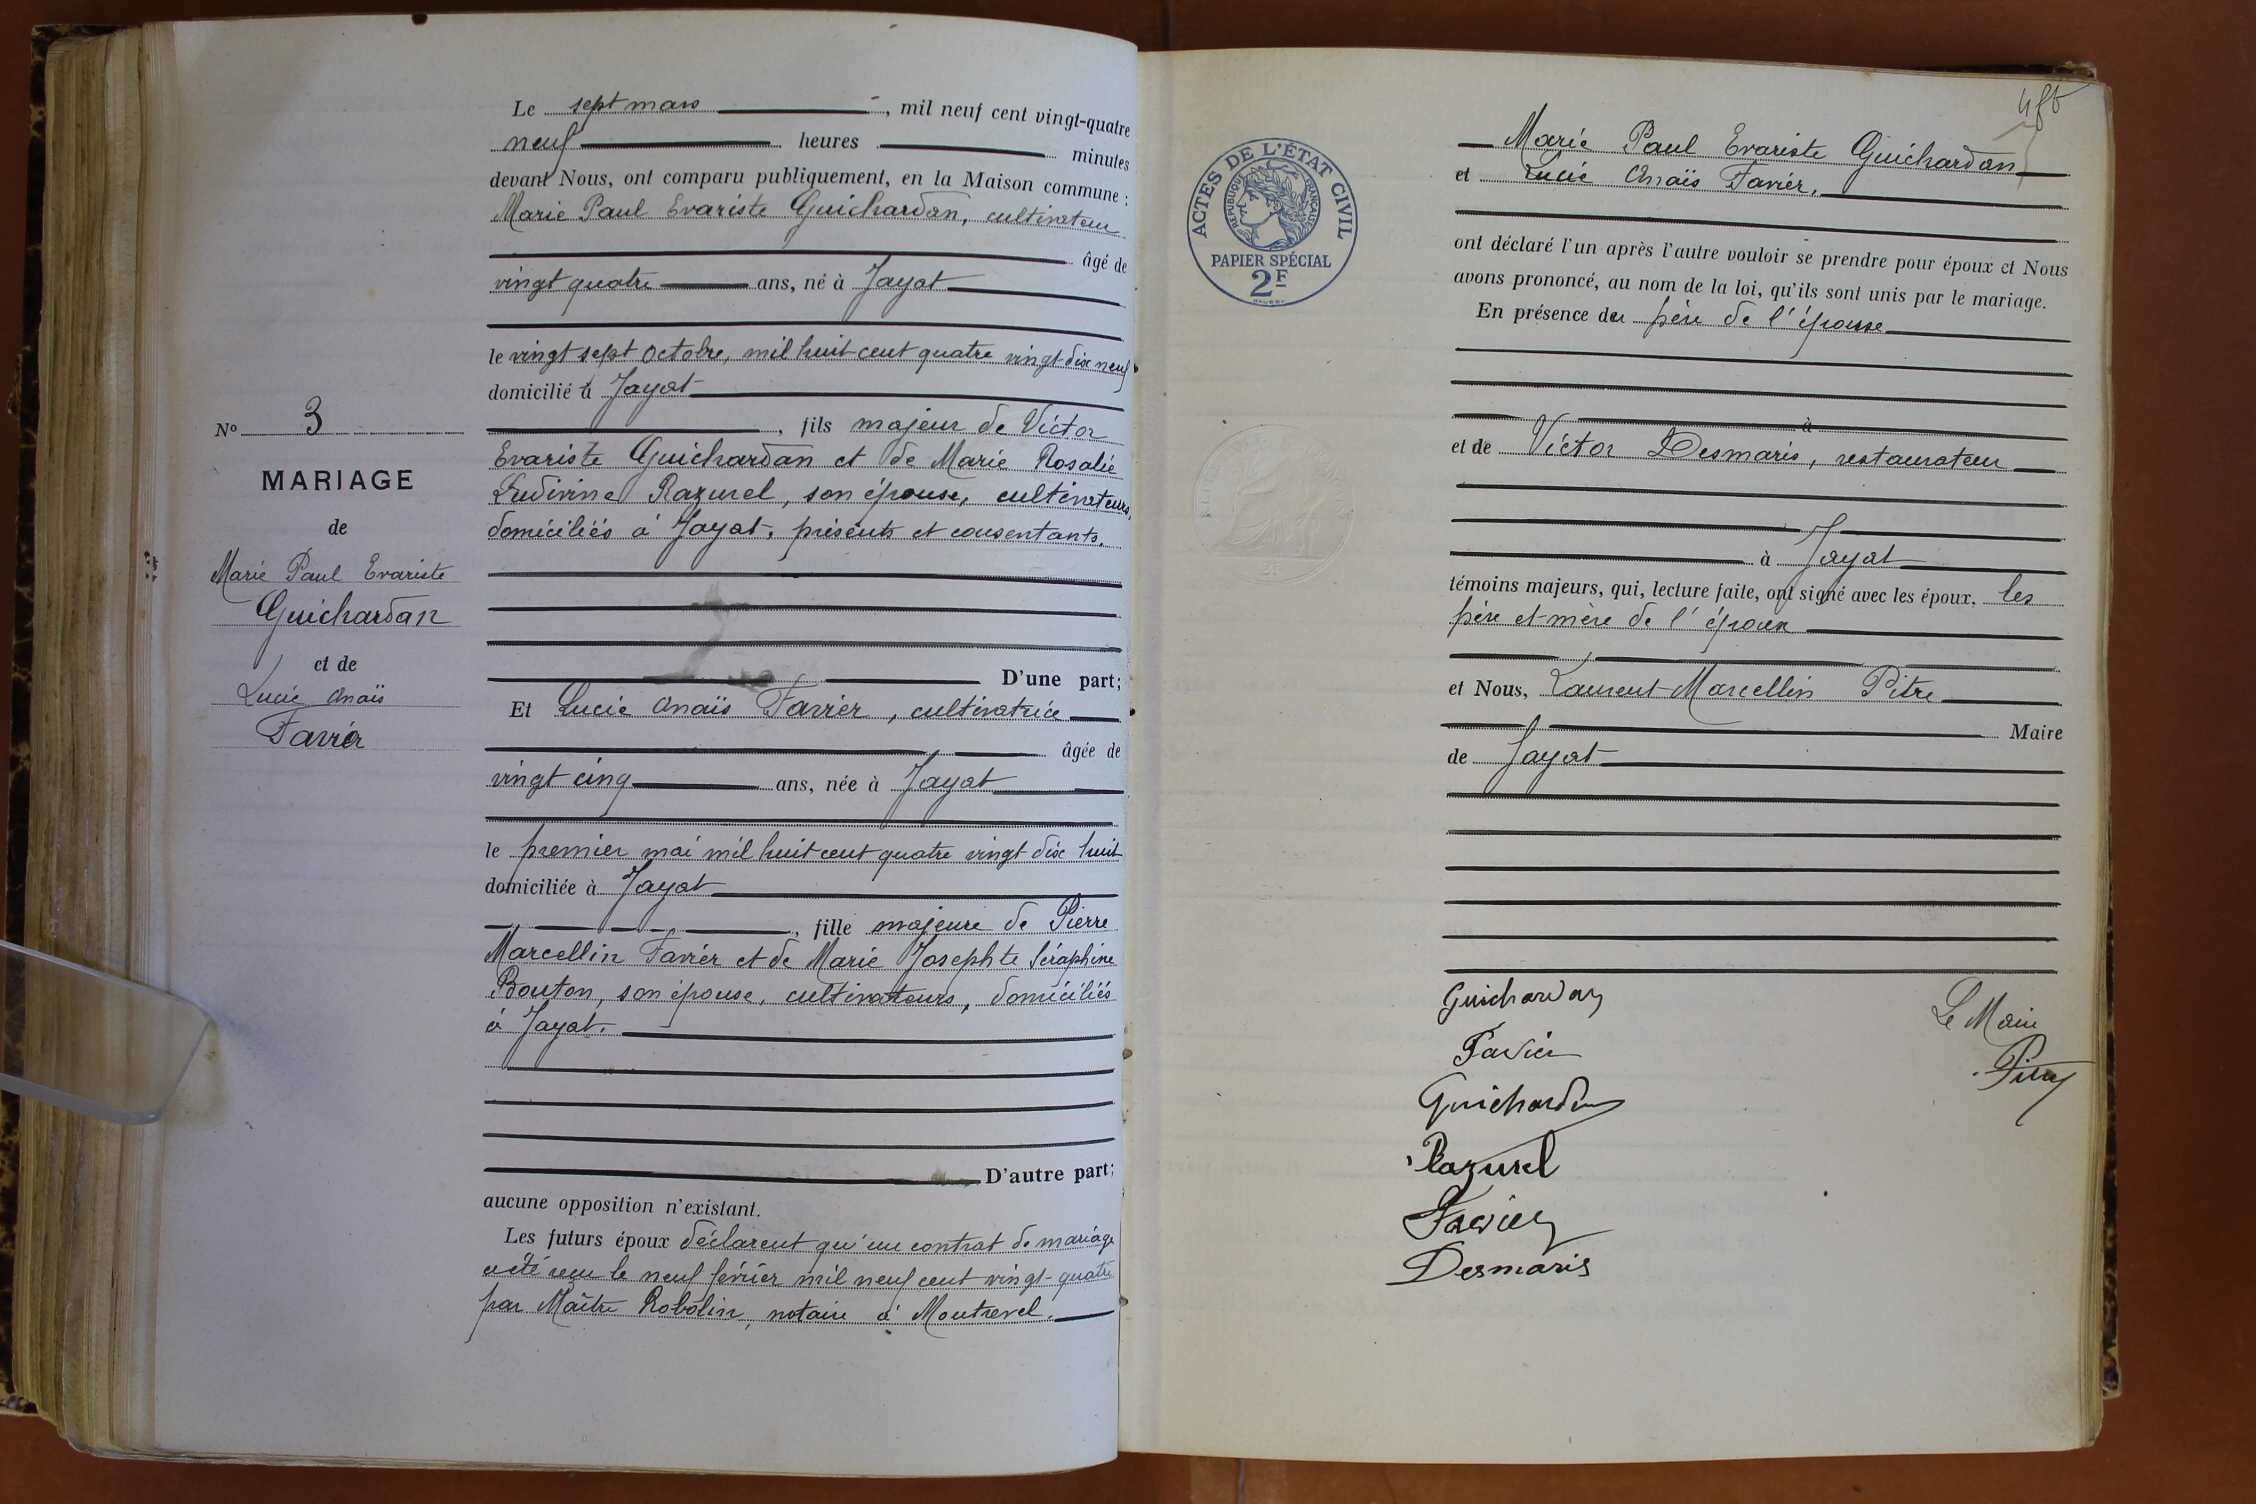 Le sept mars, mil neuf cent vingt-quatre
neuf heures minutes
devant Nous, ont comparu publiquement, en la Maison commune :
Marie Paul Evariste Guichardan, cultivateur
âgé de
vingt quatre ans, né à Jayat
le vingt sept octobre, mil huit cent quatre vingt dix neuf
domicilié à Jayat
, fils majeur de Victor
Evariste Guichardan et de Marie Rosalie
Ludivine Razurel, son épouse, cultivateurs,
domiciliés à Jayat, présents et consentants.
D'une part;
Et Lucie Anaïs Favier, cultivatrice
âgée de
vingt cinq ans, née à Jayat
le premier mai mil huit cent quatre vingt dix huit
domiciliée à Jayat
, fille majeure de Pierre
Marcellin Favier et de Marie Josephte Séraphine
Bouton, son épouse, cultivateurs, domiciliés
à Jayat.
D'autre part;
aucune opposition n'existant.
Les futurs époux déclarent qu'un contrat de mariage
a été reçu le neuf février mil neuf cent vingt-quatre
par Maître Robolin, notaire à Montrevel.
No 3
MARIAGE
de
Marie Paul Evariste
Guichardan
et de
Lucie Anaïs
Favier
ACTES DE L'ÉTAT CIVIL
RÉPUBLIQUE FRANÇAISE
PAPIER SPÉCIAL
2F
Marie Paul Evariste Guichardan
et Lucie Anaïs Favier.
ont déclaré l'un après l'autre vouloir se prendre pour époux et Nous
avons prononcé, au nom de la loi, qu'ils sont unis par le mariage.
En présence du père de l'épouse
à
et de Victor Desmaris, restaurateur
à Jayat
témoins majeurs, qui, lecture faite, ont signé avec les époux, les
père et mère de l'époux
et Nous, Laurent Marcellin Pitre
Maire
de Jayat
Guichardan
Favier
Guichardan
Razurel
Favier
Desmaris
Le Maire
Pitre